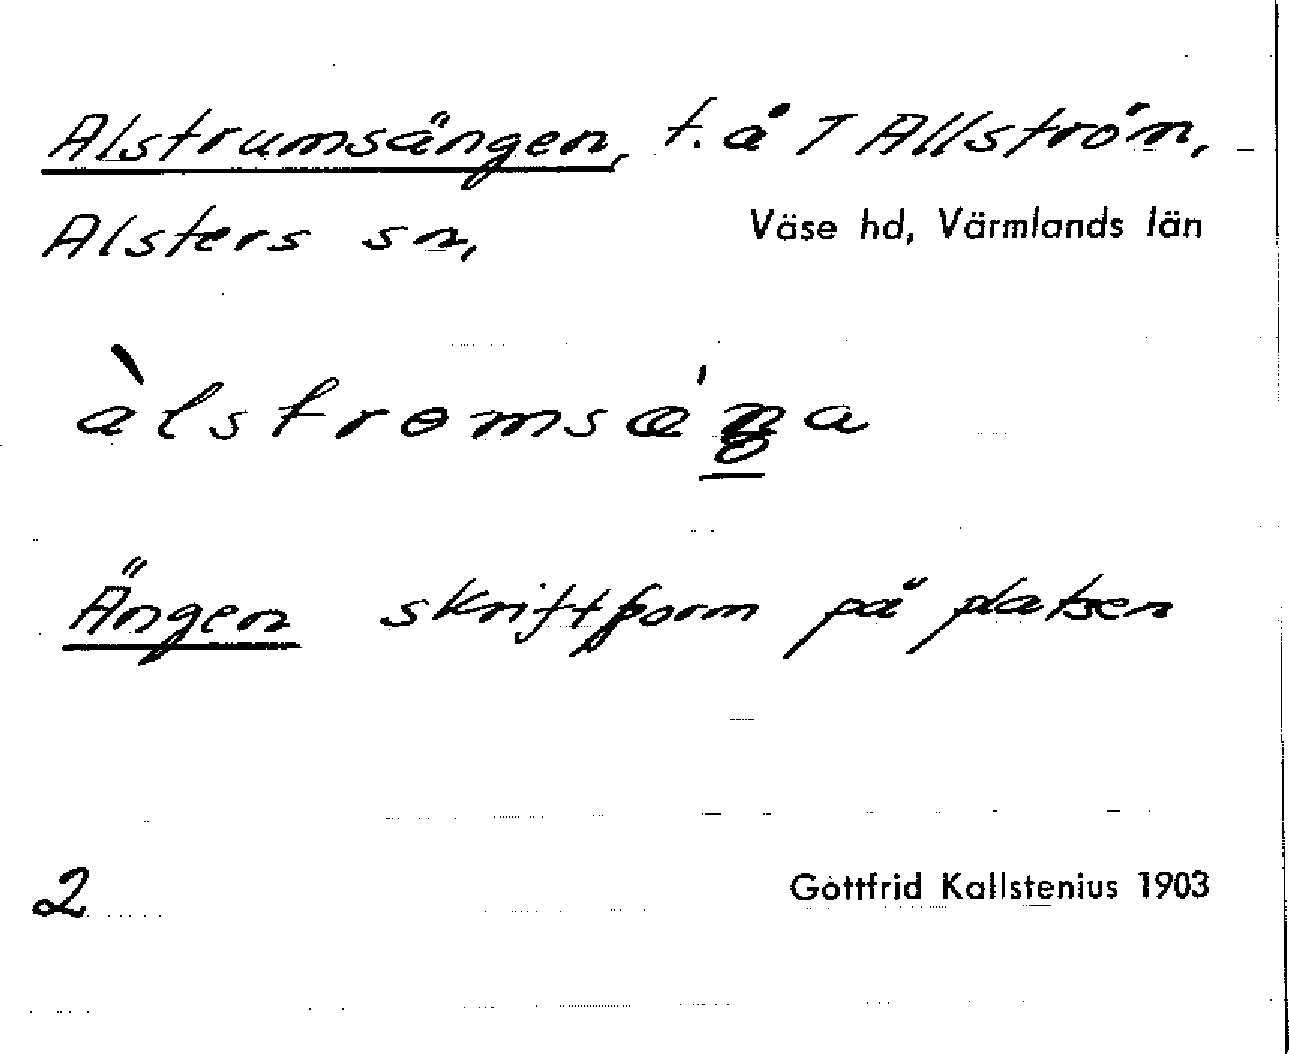 Alstrumsängen, t. å T Allström,
Alsters sn, Väse hd, Värmlands län
àlstromsæ'ŋa
Ängen skriftform på platsen
2 Gottfrid Kallstenius 1903